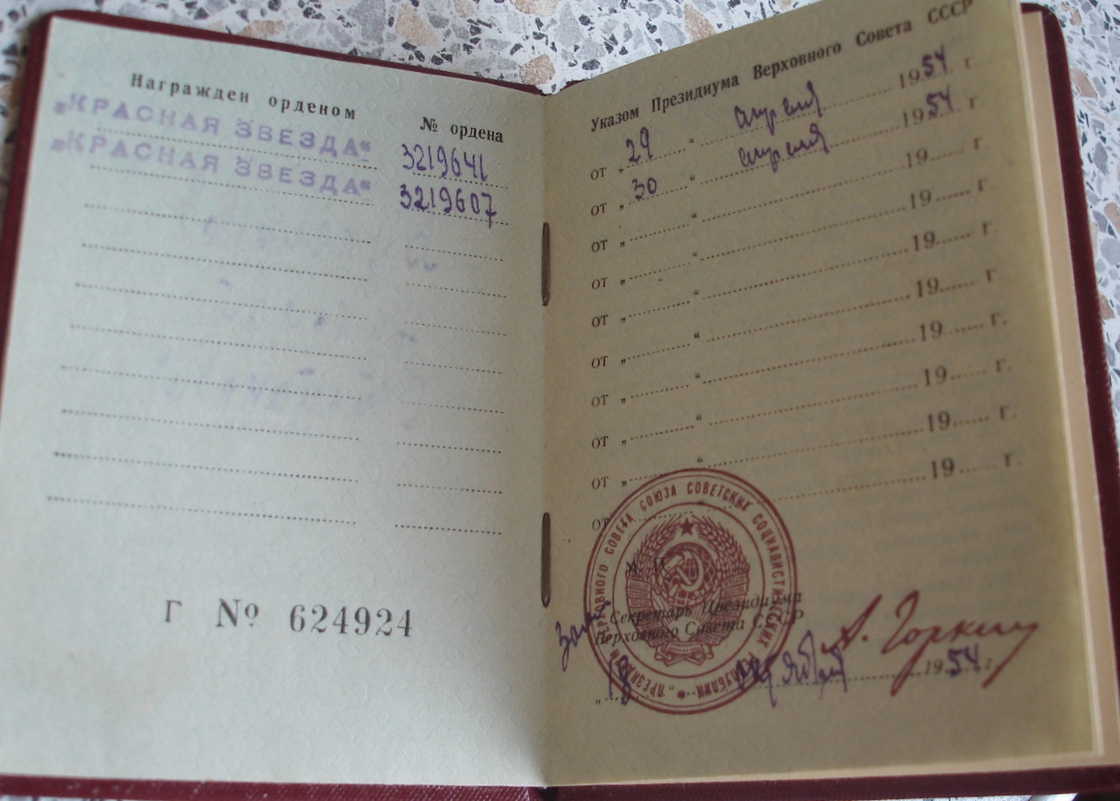 Награжден орденом
№ ордена
„КРАСНАЯ ЗВЕЗДА“ 3219641
„КРАСНАЯ ЗВЕЗДА“ 3219607
Г № 624924
Указом Президиума Верховного Совета СССР
от „ 29 “ апреля 1954 г
от „ 30 “ апреля 1954 г
от „ “ 19 г.
от „ “ 19 г.
от „ “ 19 г.
от „ “ 19 г.
от „ “ 19 г.
от „ “ 19 г.
от „ “ 19 г.
от „ “ 19 г.
от
ПРЕЗИДИУМ ВЕРХОВНОГО СОВЕТА СОЮЗА СОВЕТСКИХ СОЦИАЛИСТИЧЕСКИХ РЕСПУБЛИК
М.
Секретарь Президиума
Верховного Совета СССР
А. Горкин
„ 18 1954 г.